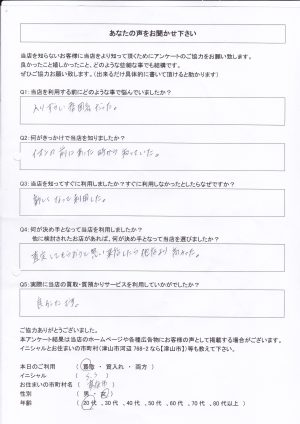 あなたの声をお聞かせ下さい
当店を知らないお客様に当店をより知って頂くためにアンケートのご協力をお願い致します。
良かったこと嬉しかったこと、どのような些細な事でも結構です。
ぜひご協力お願い致します。(出来るだけ具体的に書いて頂けると助かります)
Q1: 当店を利用する前にどのような事で悩んでいましたか?
入りずらい雰囲気だった。
Q2: 何がきっかけで当店を知りましたか?
イオンの前にあった時から知っていた。
Q3: 当店を知ってすぐに利用しましたか?すぐに利用しなかったとしたらなぜですか?
新しくなって利用した。
Q4: 何が決め手となって当店を利用しましたか?
他に検討されたお店があれば、何が決め手となって当店を選びましたか?
査定してもらおうと思い来店したら他店より高かった。
Q5: 実際に当店の買取・質預かりサービスを利用していかがでしたか?
良かったです。
ご協力ありがとうございました。
本アンケート結果は当店のホームページや各種広告物にお客様の声として掲載する場合がございます。
イニシャルとお住まいの市町村(津山市河辺 766-2 なら【津山市】)等も教えて下さい。
本日のご利用 ( 買取 ・ 質入れ ・ 両方 )
イニシャル (
お住まいの市町村名 (
性別 ( 男 ・ 女 )
年齢 ( 20代 、30代 、40代 、50代 、60代 、70代 、80代 、90代以上 )